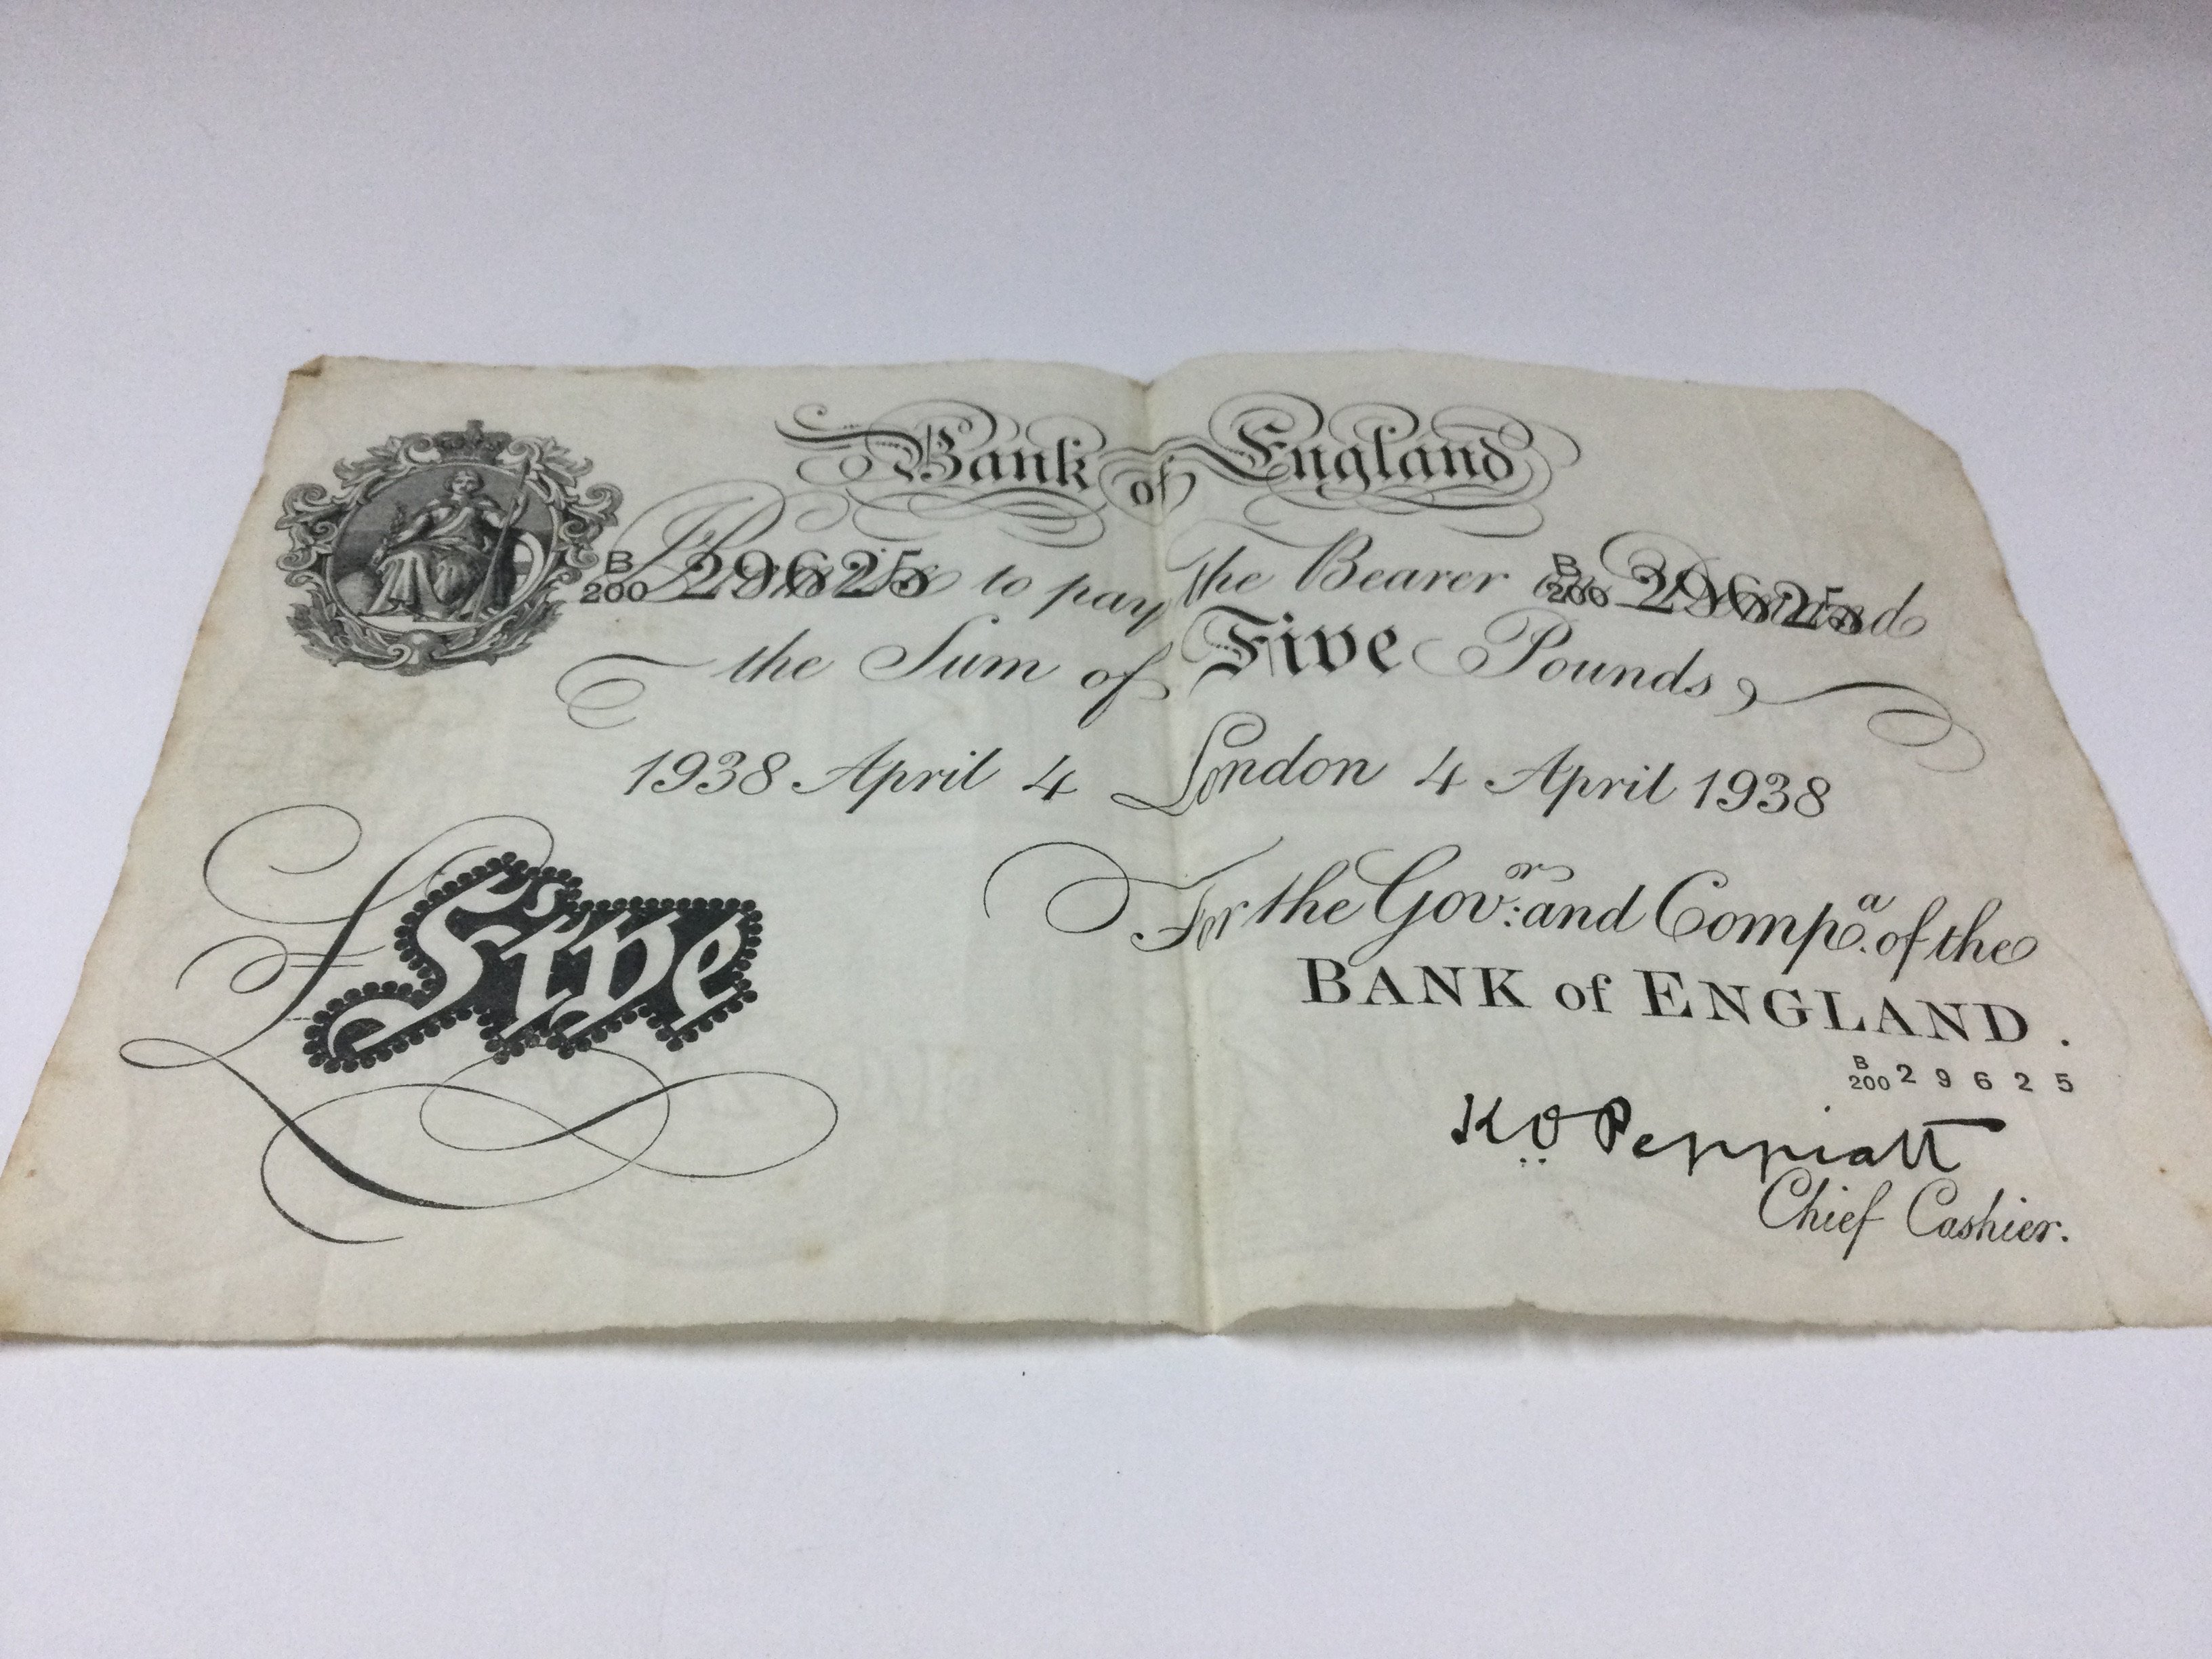 Bank of England
B/200 29625 Promise to pay the Bearer on Demand B/200 29625
the Sum of Five Pounds,
1938 April 4 London 4 April 1938
£Five
For the Govʳ: and Compᵃ. of the
BANK of ENGLAND.
B/200 29625
K.O. Peppiatt
Chief Cashier.